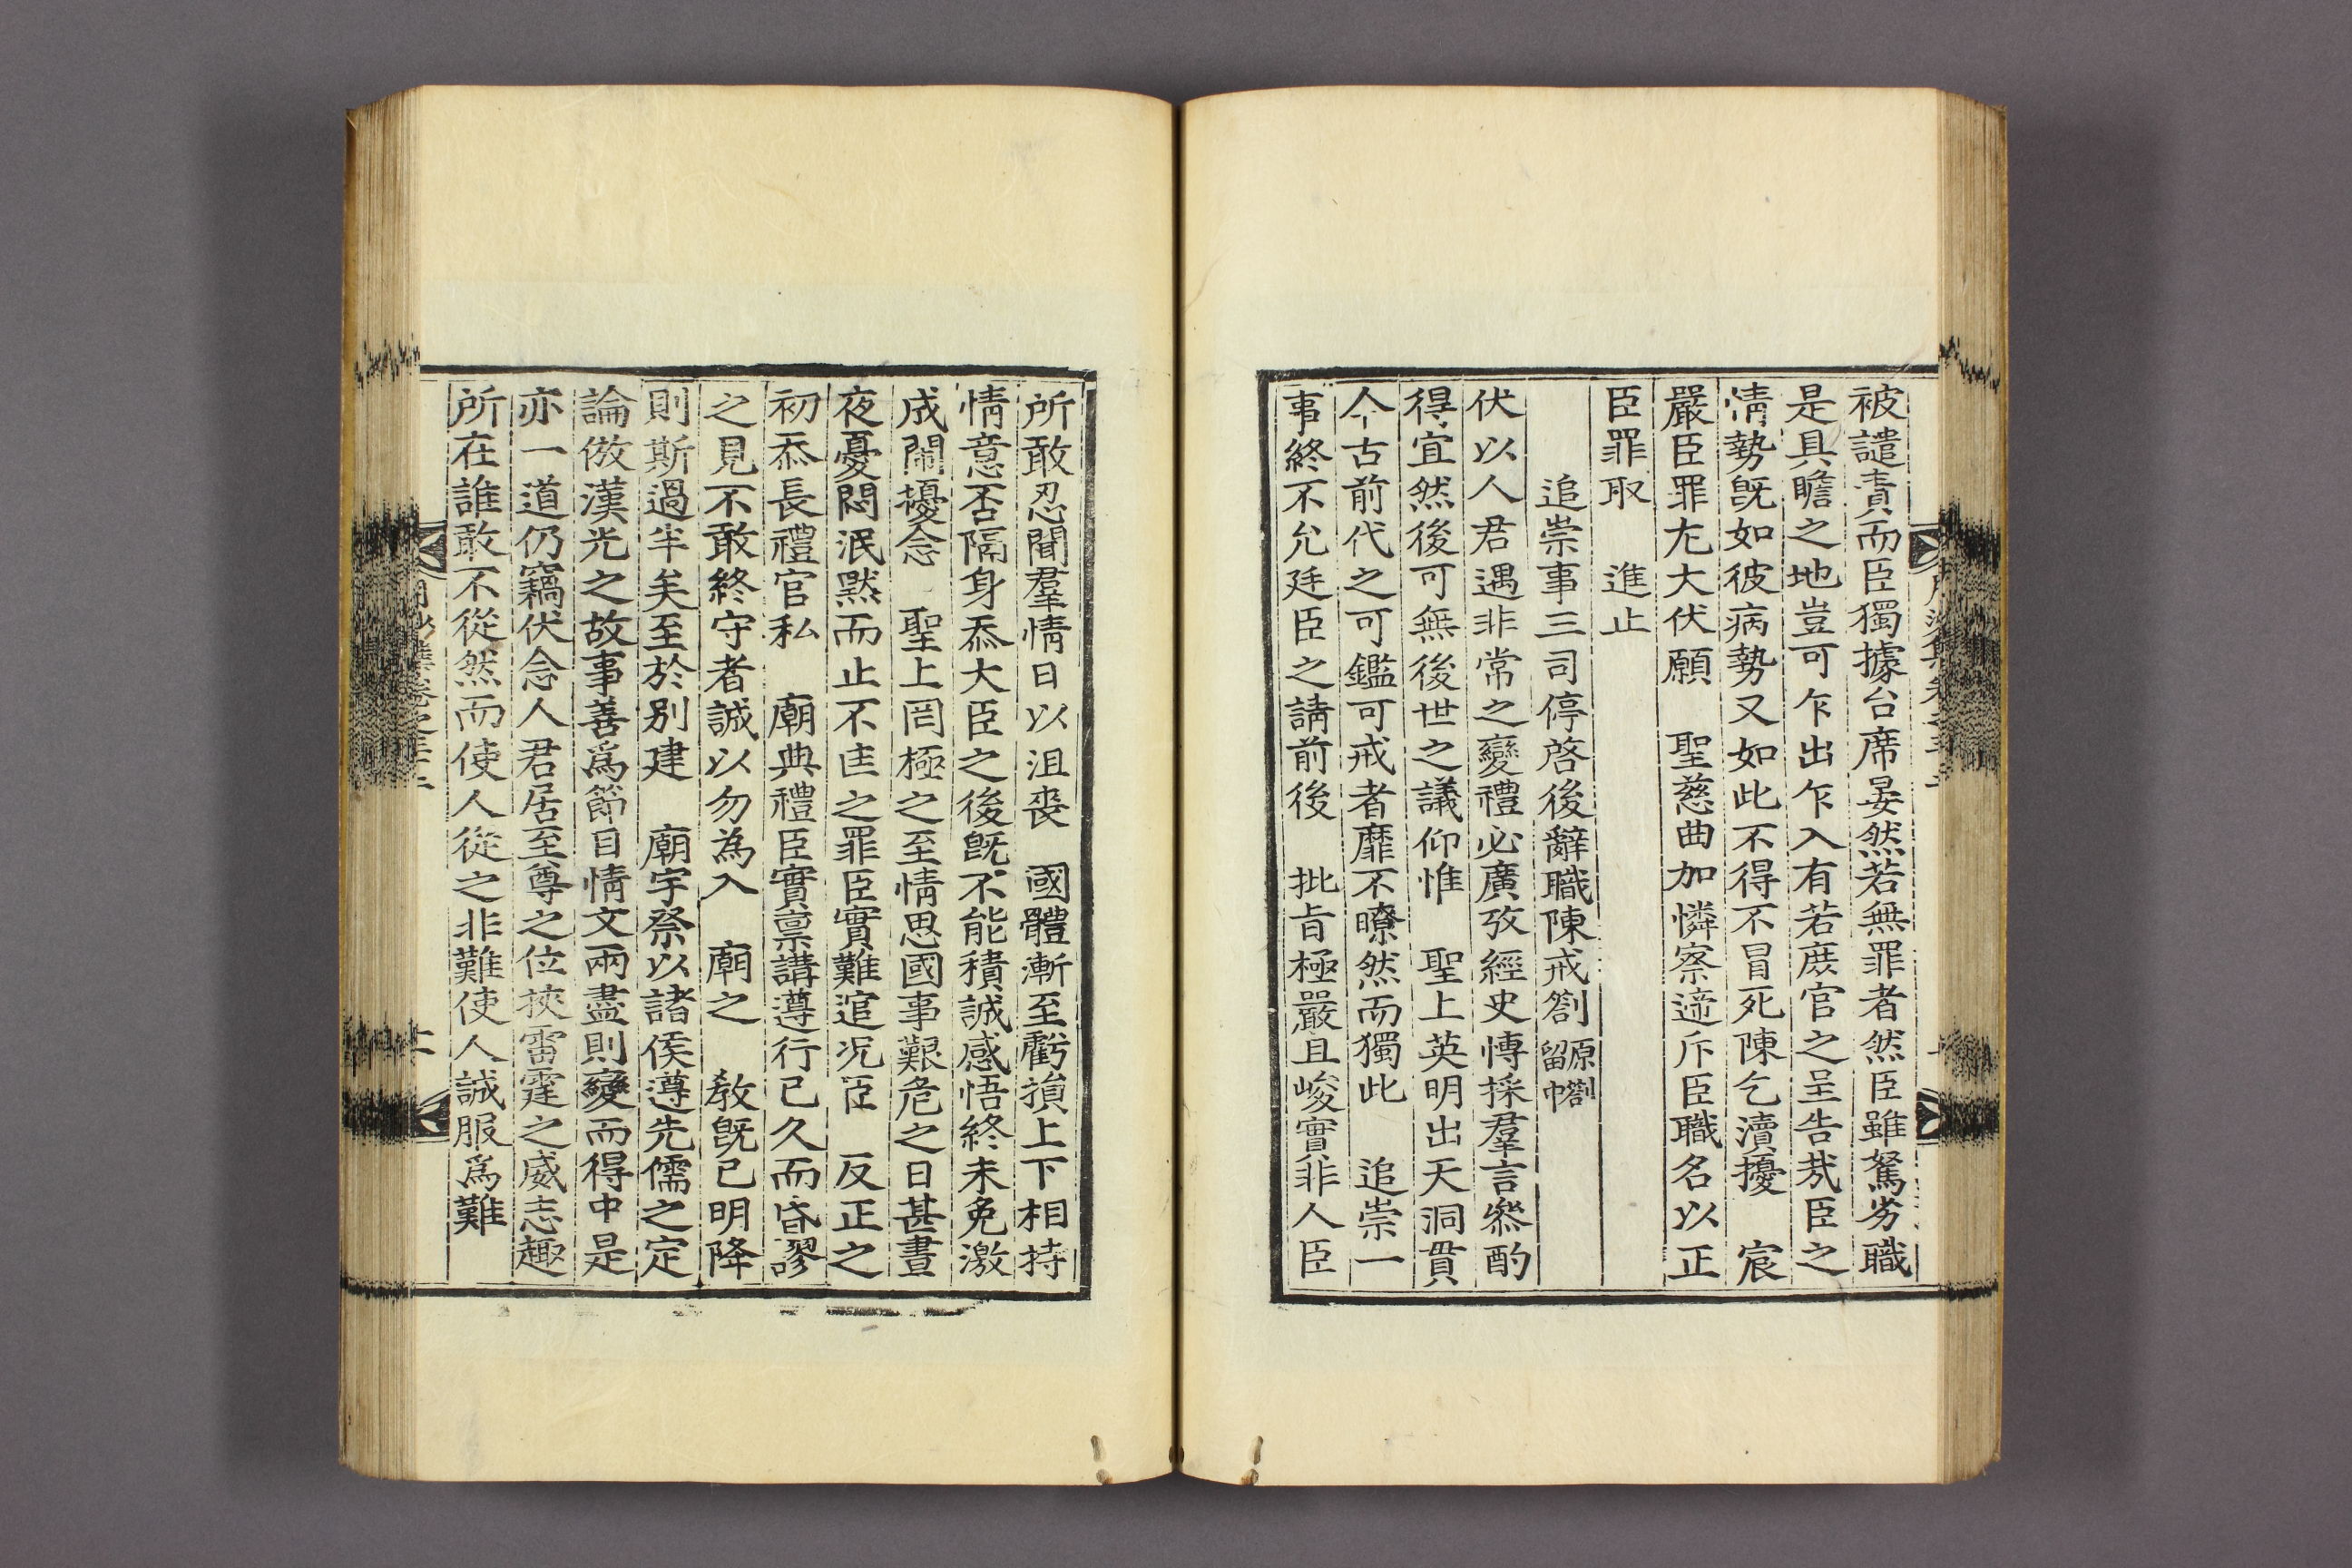 被譴責而臣獨據台席晏然若無罪者然臣雖駑劣職
是具瞻之地豈可乍出乍入有若庶官之呈告哉臣之
情勢旣如彼病勢又如此不得不冒死陳乞瀆擾　宸
嚴臣罪尤大伏願　聖慈曲加憐察遞斥臣職名以正
臣罪取　進止
追崇事三司停啓後辭職陳戒劄 原劄留中
伏以人君遇非常之變禮必廣攷經史博採羣言叅酌
得宜然後可無後世之議仰惟　聖上英明出天洞貫
今古前代之可鑑可戒者靡不瞭然而獨此　追崇一
事終不允廷臣之請前後　批旨極嚴且峻實非人臣
所敢忍聞羣情日以沮喪　國體漸至虧損上下相持
情意否隔身忝大臣之後旣不能積誠感悟終未免激
成鬧擾念　聖上罔極之至情思國事艱危之日甚晝
夜憂悶泯默而止不匡之罪臣實難逭况臣　反正之
初忝長禮官私　廟典禮臣實禀講遵行已久而昏謬
之見不敢終守者誠以勿為入　廟之　敎旣已明降
則斯過半矣至於別建　廟宇祭以諸侯遵先儒之定
論倣漢光之故事善爲節目情文兩盡則變而得中是
亦一道仍竊伏念人君居至尊之位挾雷霆之威志趣
所在誰敢不從然而使人從之非難使人誠服爲難